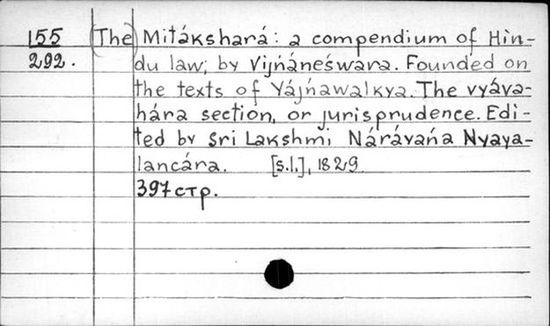 155 (The) Mitákshará: a compendium of Hin-
292. du law; by Vijńáneśwara. Founded on
the texts of Yájńawalkya. The vyáva-
hára section, or jurisprudence. Edi-
ted by Sri Lakshmi Náráyańa Nyaya-
lancára. [s.l.], 1829.
397 стр.